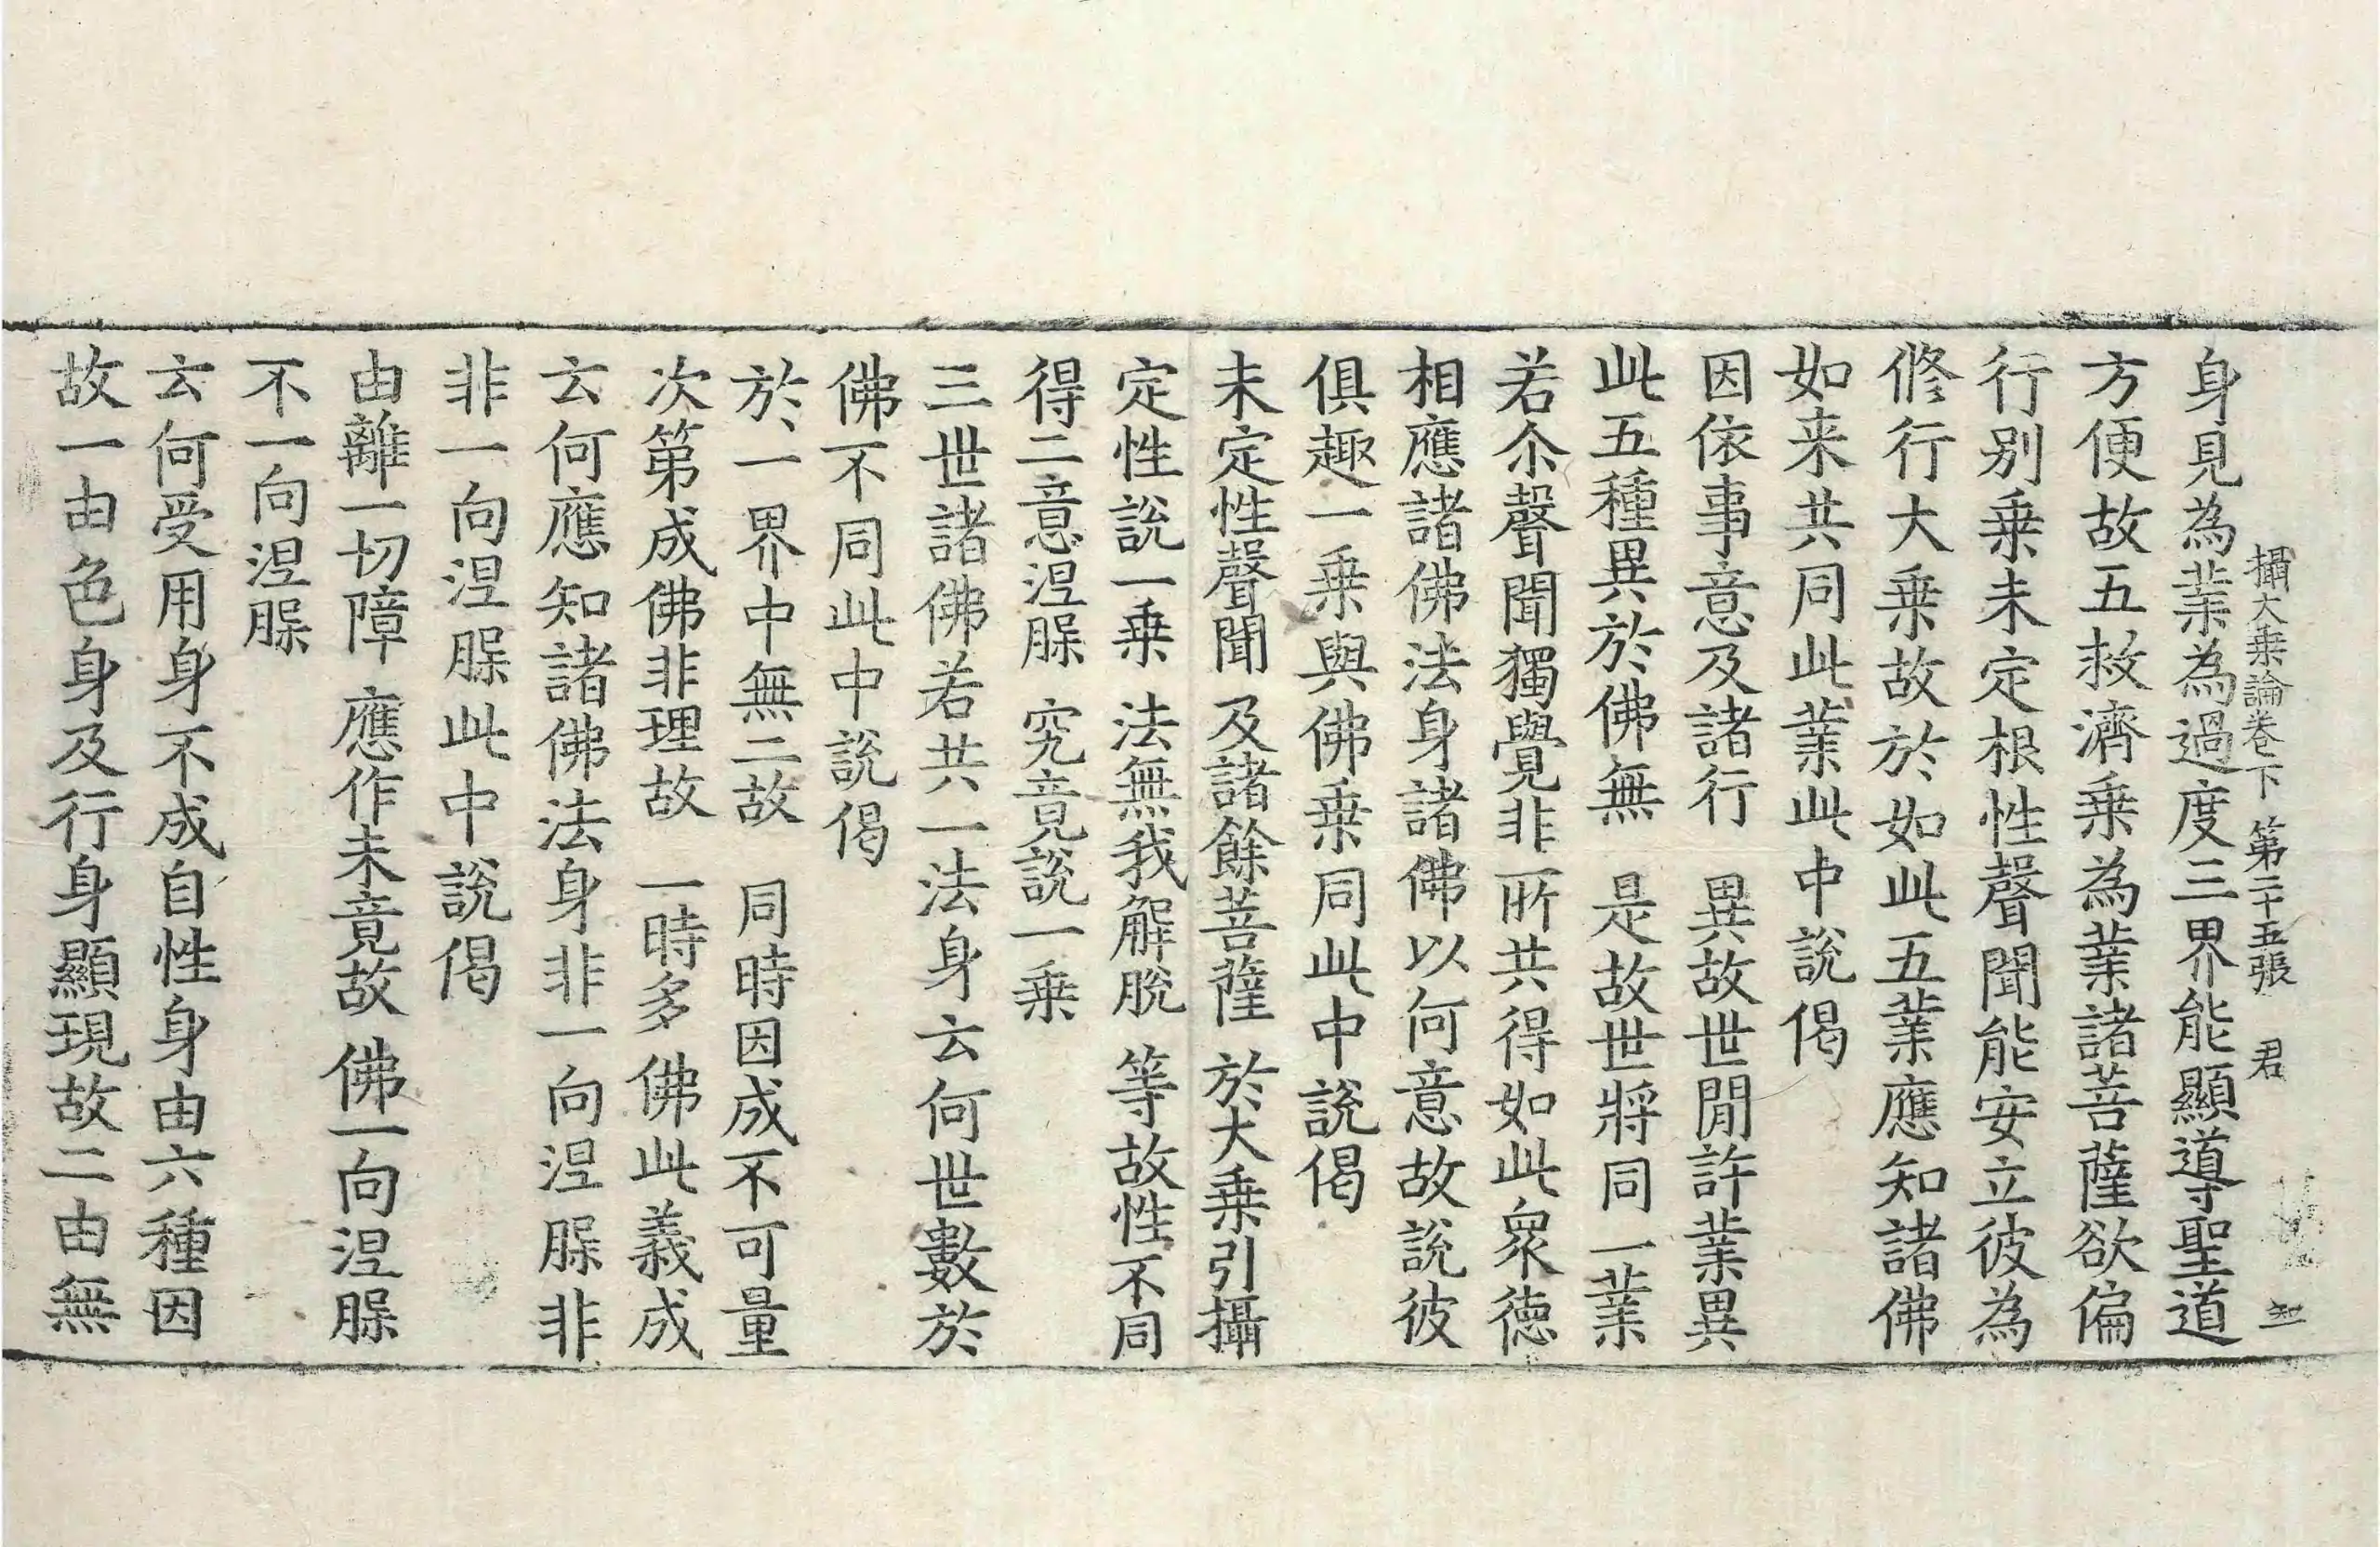 攝大乗論卷下　第二十五張　君　知
身見為業為過度三界能顯導聖道
方便故五救濟乗為業諸菩薩欲偏
行别乗未定根性聲聞能安立彼為
修行大乗故於如此五業應知諸佛
如来共同此業此中說偈
因依事意及諸行　異故世間許業異
此五種異於佛無　是故世將同一業
若尒聲聞獨覺非所共得如此衆德
相應諸佛法身諸佛以何意故說彼
俱趣一乗與佛乗同此中說偈
未定性聲聞　及諸餘菩薩　於大乗引攝
定性說一乗　法無我解脫　等故性不同
得二意涅脲　究竟說一乗
三世諸佛若共一法身云何世數於
佛不同此中說偈
於一界中無二故　同時因成不可量
次第成佛非理故　一時多佛此義成
云何應知諸佛法身非一向涅脲非
非一向涅脲此中說偈
由離一切障　應作未竟故　佛一向涅脲
不一向涅脲
云何受用身不成自性身由六種因
故一由色身及行身顯現故二由無